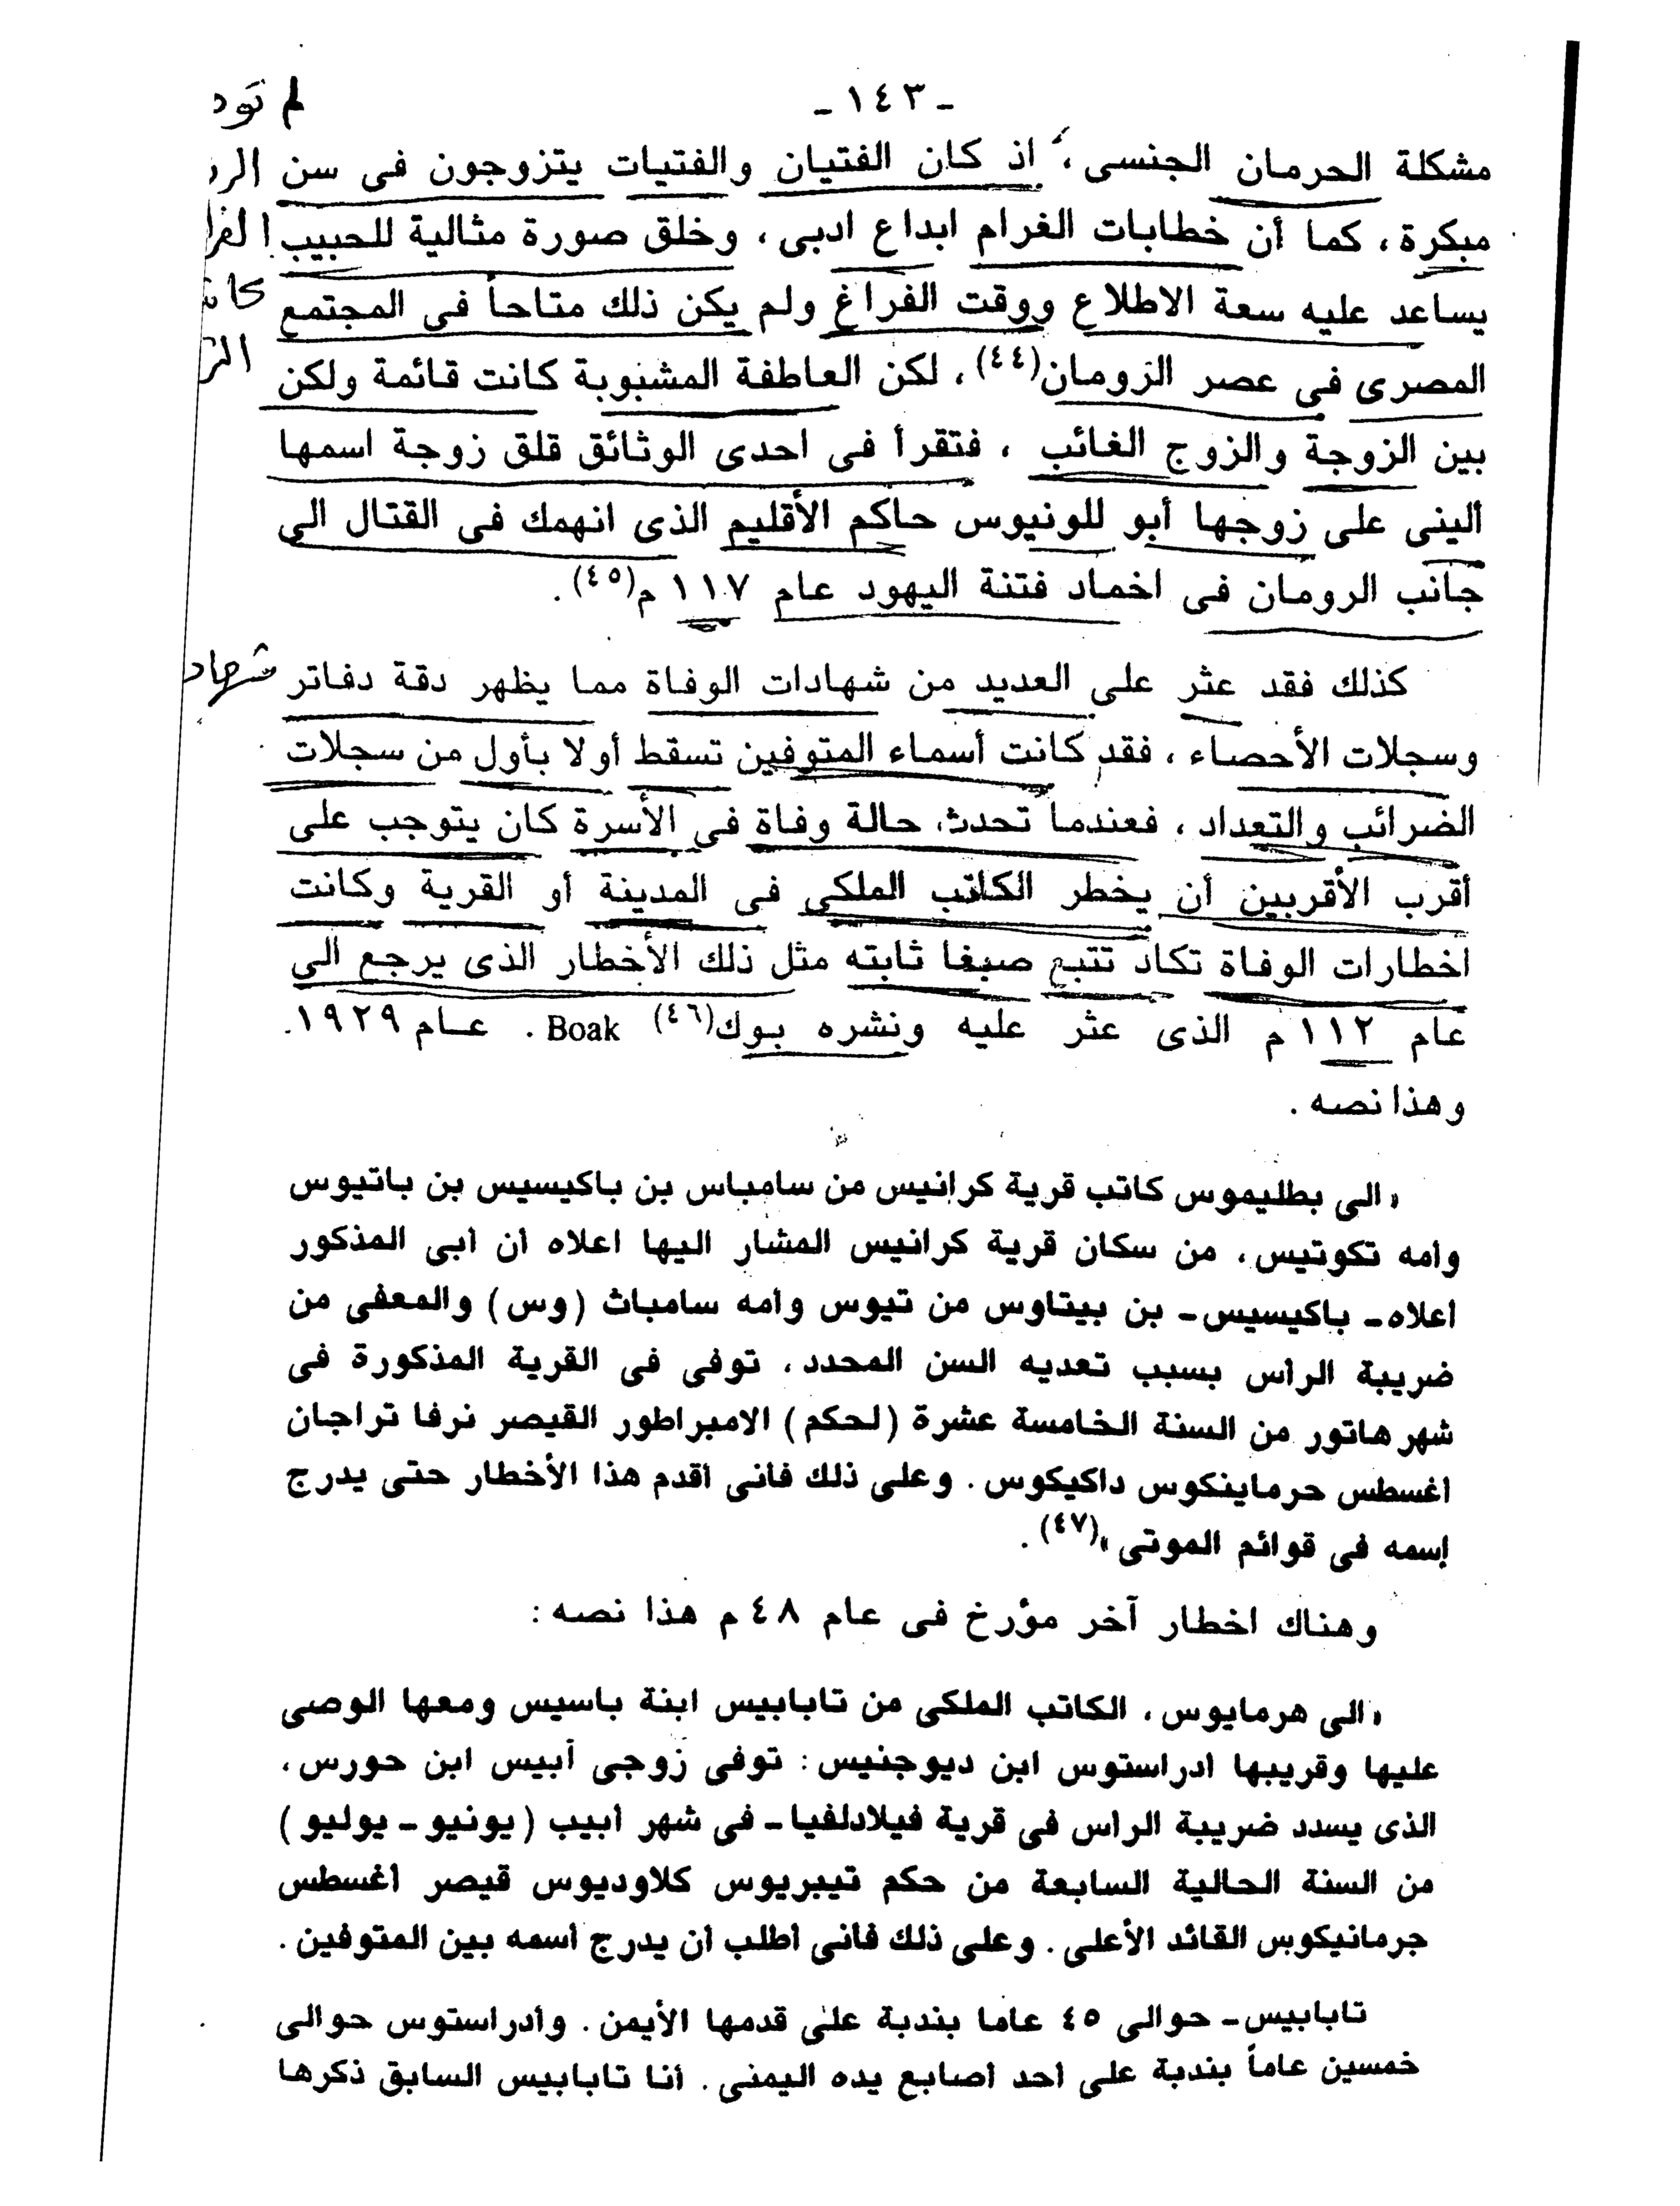 - ١٤٣ -
لم تود
مشكلة الحرمان الجنسى ، اذ كان الفتيان والفتيات يتزوجون فى سن
مبكرة ، كما أن خطابات الغرام ابداع ادبى ، وخلق صورة مثالية للحبيب
يساعد عليه سعة الاطلاع ووقت الفراغ ولم يكن ذلك متاحاً فى المجتمع
المصرى فى عصر الرومان(٤٤) ، لكن العاطفة المشبوبة كانت قائمة ولكن
بين الزوجة والزوج الغائب ، فتقرأ فى احدى الوثائق قلق زوجة اسمها
ألينى على زوجها أبو للونيوس حاكم الأقليم الذى انهمك فى القتال الى
جانب الرومان فى اخماد فتنة اليهود عام ١١٧ م(٤٥) .
كذلك فقد عثر على العديد من شهادات الوفاة مما يظهر دقة دفاتر
وسجلات الأحصاء ، فقد كانت أسماء المتوفين تسقط أولا بأول من سجلات
الضرائب والتعداد ، فعندما تحدث حالة وفاة فى الأسرة كان يتوجب على
أقرب الأقربين أن يخطر الكاتب الملكى فى المدينة أو القرية وكانت
اخطارات الوفاة تكاد تتبع صيغا ثابته مثل ذلك الأخطار الذى يرجع الى
عام ١١٢ م الذى عثر عليه ونشره بوك(٤٦) Boak . عام ١٩٢٩.
وهذا نصه .
« الى بطليموس كاتب قرية كرانيس من سامباس بن باكيسيس بن باتيوس
وأمه تكوتيس ، من سكان قرية كرانيس المشار اليها اعلاه أن أبى المذكور
أعلاه - باكيسيس - بن بيتاوس من تيوس وأمه سامباث (وس) والمعفى من
ضريبة الرأس بسبب تعديه السن المحدد ، توفى فى القرية المذكورة فى
شهر هاتور من السنة الخامسة عشرة (لحكم) الامبراطور القيصر نرفا تراجان
أغسطس حرماينكوس داكيكوس . وعلى ذلك فأنى أقدم هذا الأخطار حتى يدرج
إسمه فى قوائم الموتى »(٤٧) .
وهناك اخطار آخر مؤرخ فى عام ٤٨ م هذا نصه :
« الى هرمايوس ، الكاتب الملكى من تابابيس ابنة باسيس ومعها الوصى
عليها وقريبها ادراستوس ابن ديوجنيس : توفى زوجى أبيس ابن حورس ،
الذى يسدد ضريبة الرأس فى قرية فيلادلفيا - فى شهر أبيب (يونيو - يوليو)
من السنة الحالية السابعة من حكم تيبريوس كلاوديوس قيصر أغسطس
جرمانيكوس القائد الأعلى . وعلى ذلك فأنى أطلب أن يدرج أسمه بين المتوفين .
تابابيس - حوالى ٤٥ عاما بندبة على قدمها الأيمن . وأدراستوس حوالى
خمسين عاماً بندبة على أحد أصابع يده اليمنى . أنا تابابيس السابق ذكرها